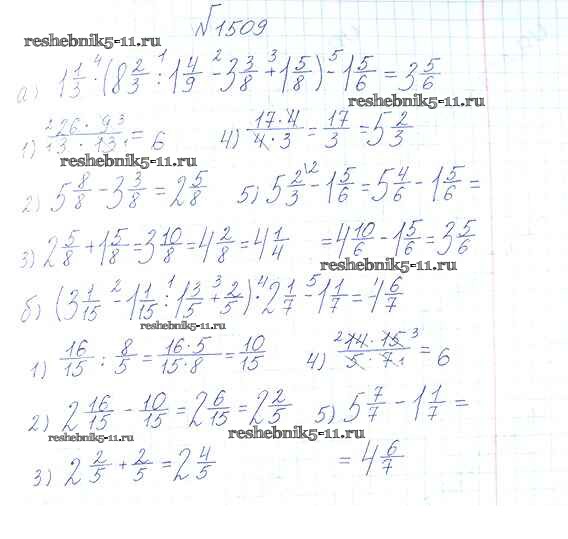 √1509
reshebnik5-11.ru
а) 1 1/3 · (8 2/3 : 1 4/9 - 3 3/8 + 1 5/8) - 1 5/6 = 3 5/6
reshebnik5-11.ru
1) 26 · 9 / 3 · 13 = 6 4) 17 · 4 / 4 · 3 = 17/3 = 5 2/3
reshebnik5-11.ru
2) 5 8/8 - 3 3/8 = 2 5/8 5) 5 2/3 - 1 5/6 = 5 4/6 - 1 5/6 =
3) 2 5/8 + 1 5/8 = 3 10/8 = 4 2/8 = 4 1/4 = 4 10/6 - 1 5/6 = 3 5/6
reshebnik5-11.ru
б) (3 1/15 - 1 1/15 : 1 3/5 + 2/5) · 2 1/7 - 1 1/7 = 4 6/7
reshebnik5-11.ru
1) 16/15 : 8/5 = 16 · 5 / 15 · 8 = 10/15 4) 14 · 15 / 5 · 7 = 6
2) 2 16/15 - 10/15 = 2 6/15 = 2 2/5 5) 5 7/7 - 1 1/7 =
reshebnik5-11.ru
reshebnik5-11.ru
3) 2 2/5 + 2/5 = 2 4/5 = 4 6/7